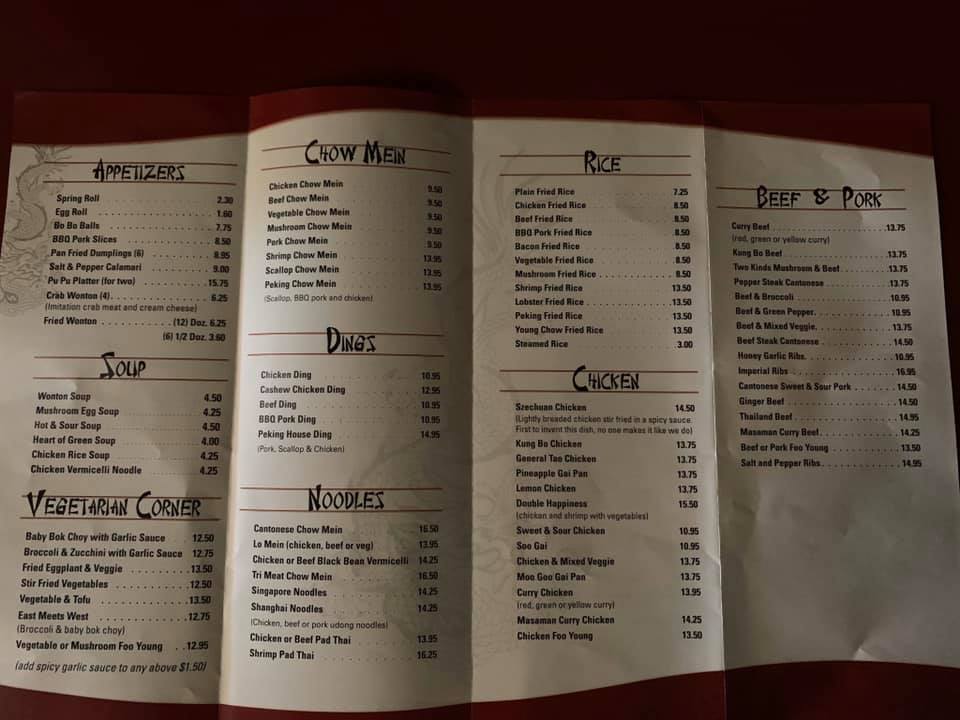 APPETIZERS
Spring Roll 2.30
Egg Roll 1.60
Bo Bo Balls 7.75
BBQ Pork Slices 8.50
Pan Fried Dumplings (6) 8.95
Salt & Pepper Calamari 9.00
Pu Pu Platter (for two) 15.75
Crab Wonton (4) 6.25
(Imitation crab meat and cream cheese)
Fried Wonton (12) Doz. 6.25
(6) 1/2 Doz. 3.60
SOUP
Wonton Soup 4.50
Mushroom Egg Soup 4.25
Hot & Sour Soup 4.50
Heart of Green Soup 4.00
Chicken Rice Soup 4.25
Chicken Vermicelli Noodle 4.25
VEGETARIAN CORNER
Baby Bok Choy with Garlic Sauce 12.50
Broccoli & Zucchini with Garlic Sauce 12.75
Fried Eggplant & Veggie 13.50
Stir Fried Vegetables 12.50
Vegetable & Tofu 13.50
East Meets West 12.75
(Broccoli & baby bok choy)
Vegetable or Mushroom Foo Young 12.95
(add spicy garlic sauce to any above $1.50)
CHOW MEIN
Chicken Chow Mein 9.50
Beef Chow Mein 9.50
Vegetable Chow Mein 9.50
Mushroom Chow Mein 9.50
Pork Chow Mein 9.50
Shrimp Chow Mein 13.95
Scallop Chow Mein 13.95
Peking Chow Mein 13.95
(Scallop, BBQ pork and chicken)
DINGS
Chicken Ding 10.95
Cashew Chicken Ding 12.95
Beef Ding 10.95
BBQ Pork Ding 10.95
Peking House Ding 14.95
(Pork, Scallop & Chicken)
NOODLES
Cantonese Chow Mein 16.50
Lo Mein (chicken, beef or veg) 13.95
Chicken or Beef Black Bean Vermicelli 14.25
Tri Meat Chow Mein 16.50
Singapore Noodles 14.25
Shanghai Noodles 14.25
(Chicken, beef or pork udong noodles)
Chicken or Beef Pad Thai 13.95
Shrimp Pad Thai 16.25
RICE
Plain Fried Rice 7.25
Chicken Fried Rice 8.50
Beef Fried Rice 8.50
BBQ Pork Fried Rice 8.50
Bacon Fried Rice 8.50
Vegetable Fried Rice 8.50
Mushroom Fried Rice 8.50
Shrimp Fried Rice 13.50
Lobster Fried Rice 13.50
Peking Fried Rice 13.50
Young Chow Fried Rice 13.50
Steamed Rice 3.00
CHICKEN
Szechuan Chicken 14.50
(Lightly breaded chicken stir fried in a spicy sauce.
First to invent this dish, no one makes it like we do)
Kung Bo Chicken 13.75
General Tao Chicken 13.75
Pineapple Gai Pan 13.75
Lemon Chicken 13.75
Double Happiness 15.50
(chicken and shrimp with vegetables)
Sweet & Sour Chicken 10.95
Soo Gai 10.95
Chicken & Mixed Veggie 13.75
Moo Goo Gai Pan 13.75
Curry Chicken 13.95
(red, green or yellow curry)
Masaman Curry Chicken 14.25
Chicken Foo Young 13.50
BEEF & PORK
Curry Beef 13.75
(red, green or yellow curry)
Kung Bo Beef 13.75
Two Kinds Mushroom & Beef 13.75
Pepper Steak Cantonese 13.75
Beef & Broccoli 10.95
Beef & Green Pepper 10.95
Beef & Mixed Veggie 13.75
Beef Steak Cantonese 14.50
Honey Garlic Ribs 10.95
Imperial Ribs 16.95
Cantonese Sweet & Sour Pork 14.50
Ginger Beef 14.50
Thailand Beef 14.95
Masaman Curry Beef 14.25
Beef or Pork Foo Young 13.50
Salt and Pepper Ribs 14.95